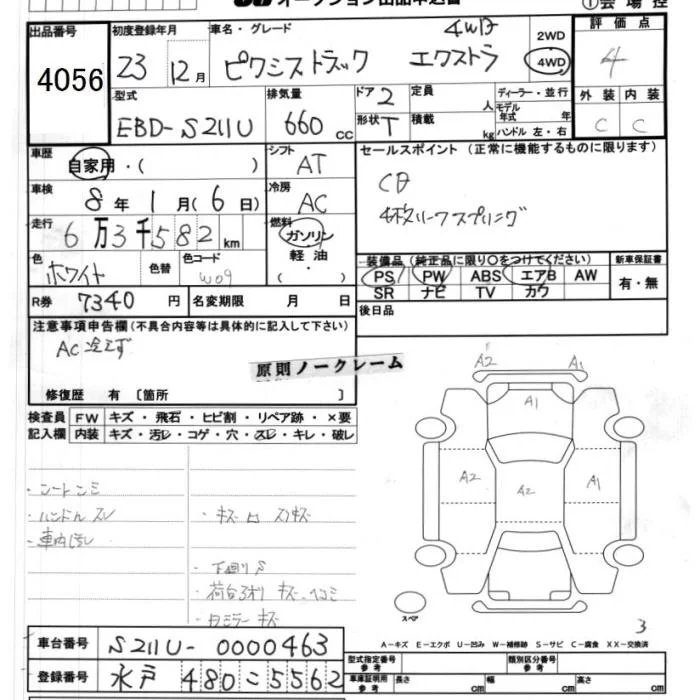 オークション出品申込書
①会場控
出品番号
4056
初度登録年月
23 12月
車名・グレード
4WD
ピクシストラック エクストラ
2WD
4WD
評価点
4
外装 内装
C C
型式
EBD-S211U
排気量
660 cc
ドア 2
形状 T
定員 人
積載 kg
ディーラー・並行
モデル年式 年
ハンドル 左・右
車歴
自家用・( )
シフト
AT
セールスポイント (正常に機能するものに限ります)
車検
8年 1月(6日)
冷房
AC
4枚リーフスプリング
走行
6万3千582km
燃料
ガソリン
軽油
( ・ )
色
ホワイト
色替
色コード
W09
装備品 (純正品に限り○をつけてください)
PS PW ABS エアB AW
SR ナビ TV カワ
新車保証書
有・無
R券 7340円
名変期限 月 日
後日品
注意事項申告欄 (不具合内容等は具体的に記入して下さい)
AC冷えず
原則ノークレーム
修復歴 有 〔箇所 〕
検査員記入欄
FW キズ・飛石・ヒビ割・リペア跡・×要
内装 キズ・汚レ・コゲ・穴・スレ・キレ・破レ
・シートシミ
・ハンドルスレ
・車内汚レ
・下廻りS
A2 A1
A1
A2 A2 A1
スペア
3
A-キズ E-エクボ U-凹み W-補修跡 S-サビ C-腐食 XX-交換済
車台番号 S211U-0000463
登録番号 水戸 480 こ 5562
型式指定番号 参考
類別区分番号 参考
車庫証明用 参考
長さ cm 幅 cm 高さ cm